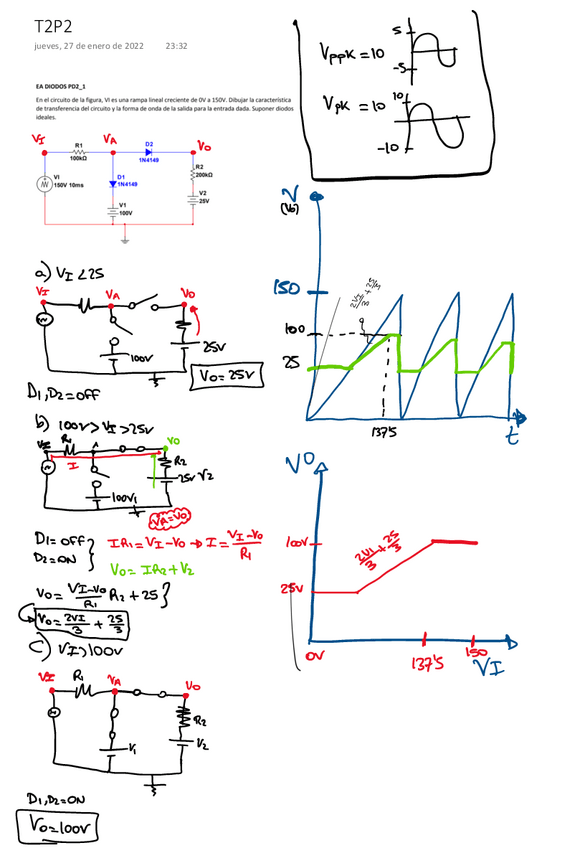 T2P2
jueves, 27 de enero de 2022 23:32
EA DIODOS PD2_1
En el circuito de la figura, VI es una rampa lineal creciente de 0V a 150V. Dibujar la característica
de transferencia del circuito y la forma de onda de la salida para la entrada dada. Suponer diodos
ideales.
VI VA VO
R1
100kΩ
D2
1N4149
VI
150V 10ms
D1
1N4149
R2
200kΩ
V1
100V
V2
25V
a) VI < 25
VI VA VO
100V
25V
VO = 25V
D1, D2 = OFF
b) 100V > VI > 25V
VI R1 A VO
I
R2
25V V2
100V1
VA = VO
D1 = OFF
D2 = ON
IR1 = VI - VO → I = VI - VO / R1
VO = IR2 + V2
VO = VI - VO / R1 R2 + 25
VO = 2VI / 3 + 25 / 3
C) VI > 100V
VI R1 VA VO
R2
V1
V2
D1, D2 = ON
VO = 100V
VppK = 10
5
-5
VpK = 10
10
-10
V
(VO)
150
100
25
2VI/3 + 25/3
137'5
t
VO
100V
25V
2VI/3 + 25/3
0V
137'5
150
VI